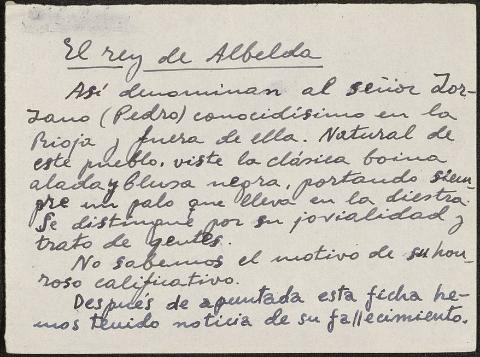 El rey de Albelda
Así denominan al señor Zor-
zano (Pedro) conocidísimo en la
Rioja y fuera de ella. Natural de
este pueblo, viste la clásica boina
alada y blusa negra, portando siem-
pre un palo que lleva en la diestra.
Se distingue por su jovialidad y
trato de gentes.
No sabemos el motivo de su hon-
roso calificativo.
Después de apuntada esta ficha he-
mos tenido noticia de su fallecimiento.